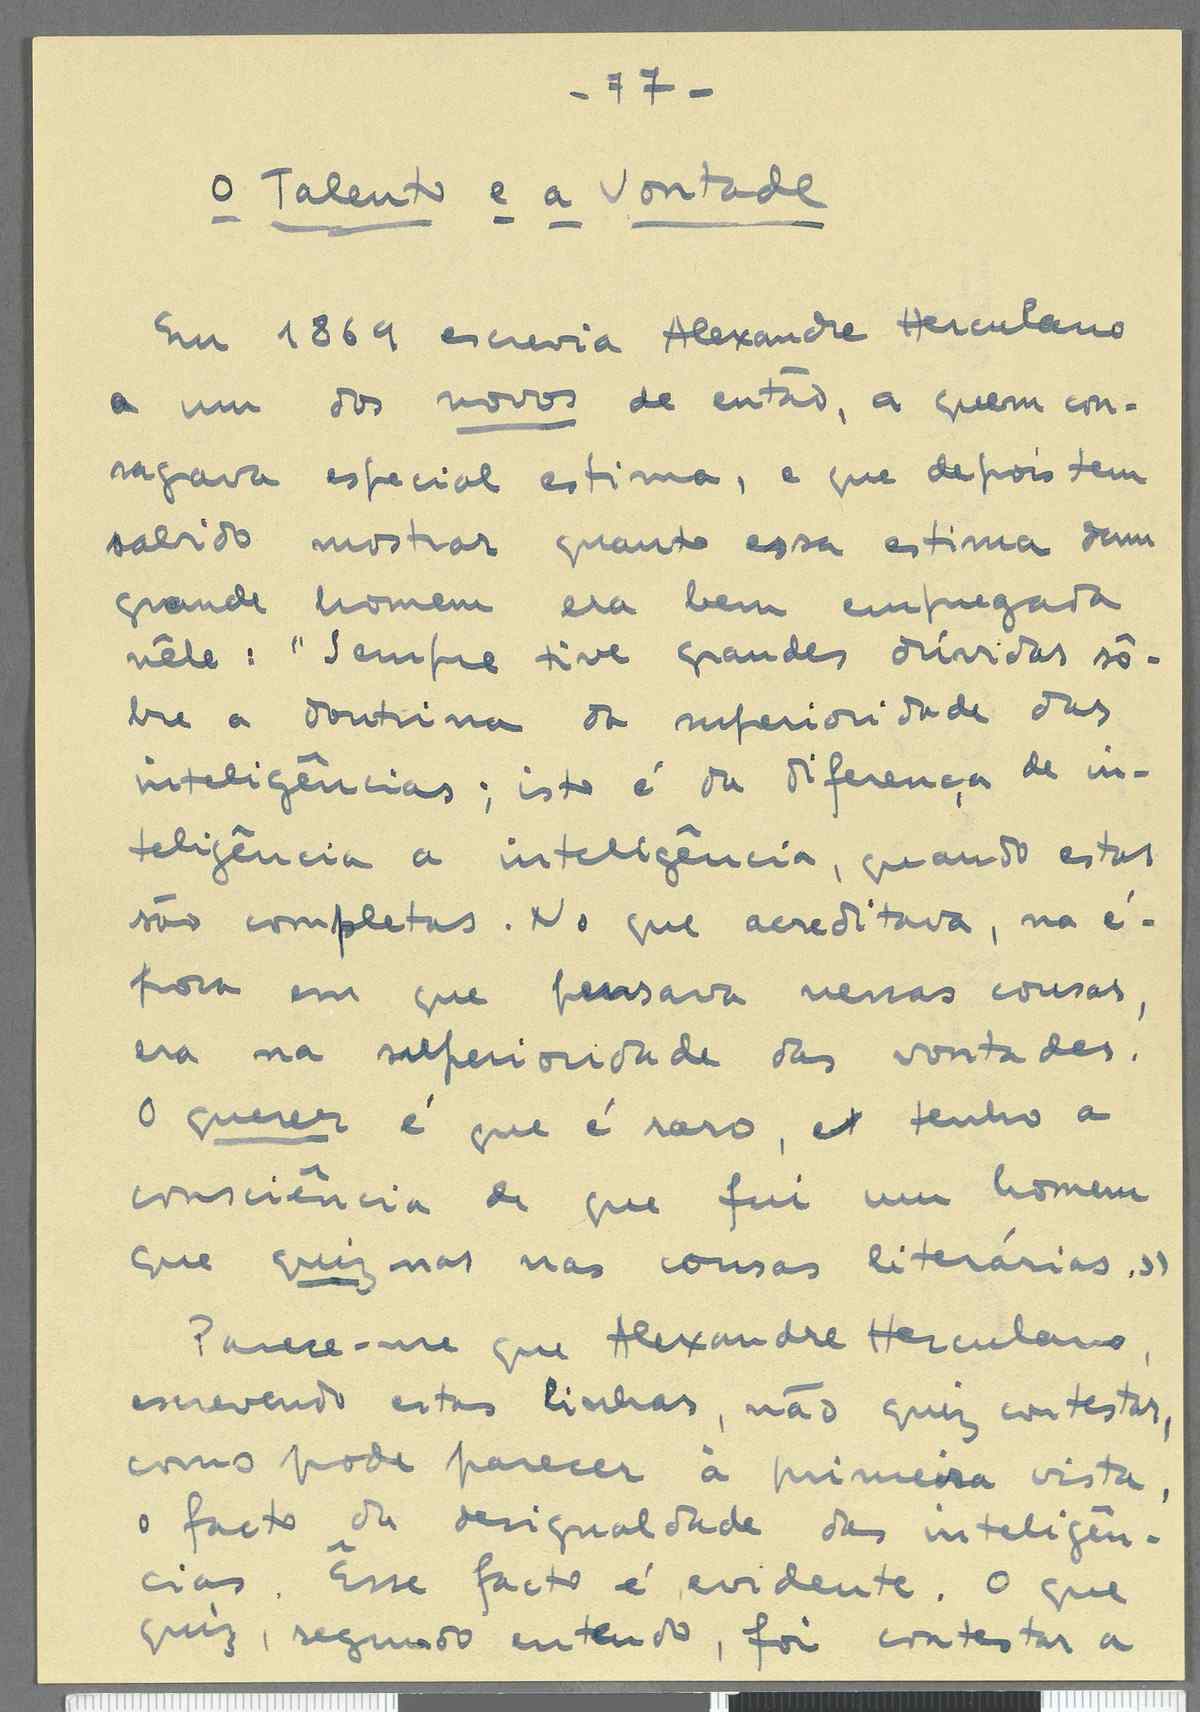 - 77 -
O Talento e a Vontade
Em 1869 escrevia Alexandre Herculano
a um dos novos de então, a quem con-
sagava especial estima, e que depois tem
sabido mostrar quanto essa estima dum
grande homem era bem empregada
nêle: "Sempre tive grandes dúvidas sô-
bre a doutrina da superioridade das
inteligências; isto é da diferença de in-
teligência a inteligência, quando estas
são completas. No que acreditava, na é-
poca em que pensava nessas cousas,
era na superioridade das vontades.
O querer é que é raro, e tenho a
consciência de que fui um homem
que quiz nas nas cousas literárias.»
Parece-me que Alexandre Herculano,
escrevendo estas linhas, não quiz contestar,
como pode parecer à primeira vista,
o facto da desigualdade das inteligên-
cias. Êsse facto é evidente. O que
quiz, segundo entendo, foi contestar a